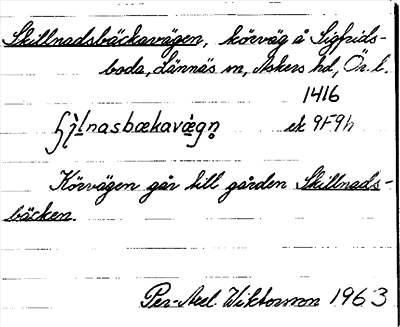 Skillnadsbäckavägen, körväg å Sigfrids-
boda, Lännäs sn, Askers hd, Ör. l.
1416
nasbækavægn ek 9F9h
Körvägen går till gården Skillnads-
bäcken.
Per-Axel Wiktorsson 1963